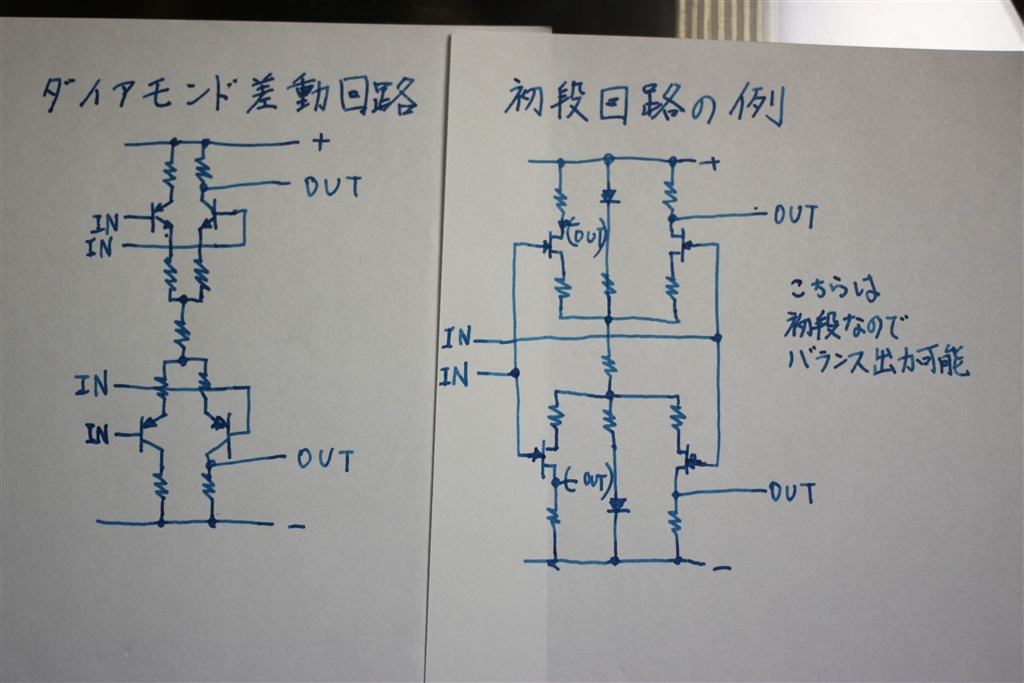 ダイアモンド差動回路
+
OUT
IN
IN
IN
IN
OUT
-
初段回路の例
+
OUT
(OUT)
こちらは
初段なので
バランス出力可能
IN
IN
(-OUT)
OUT
-